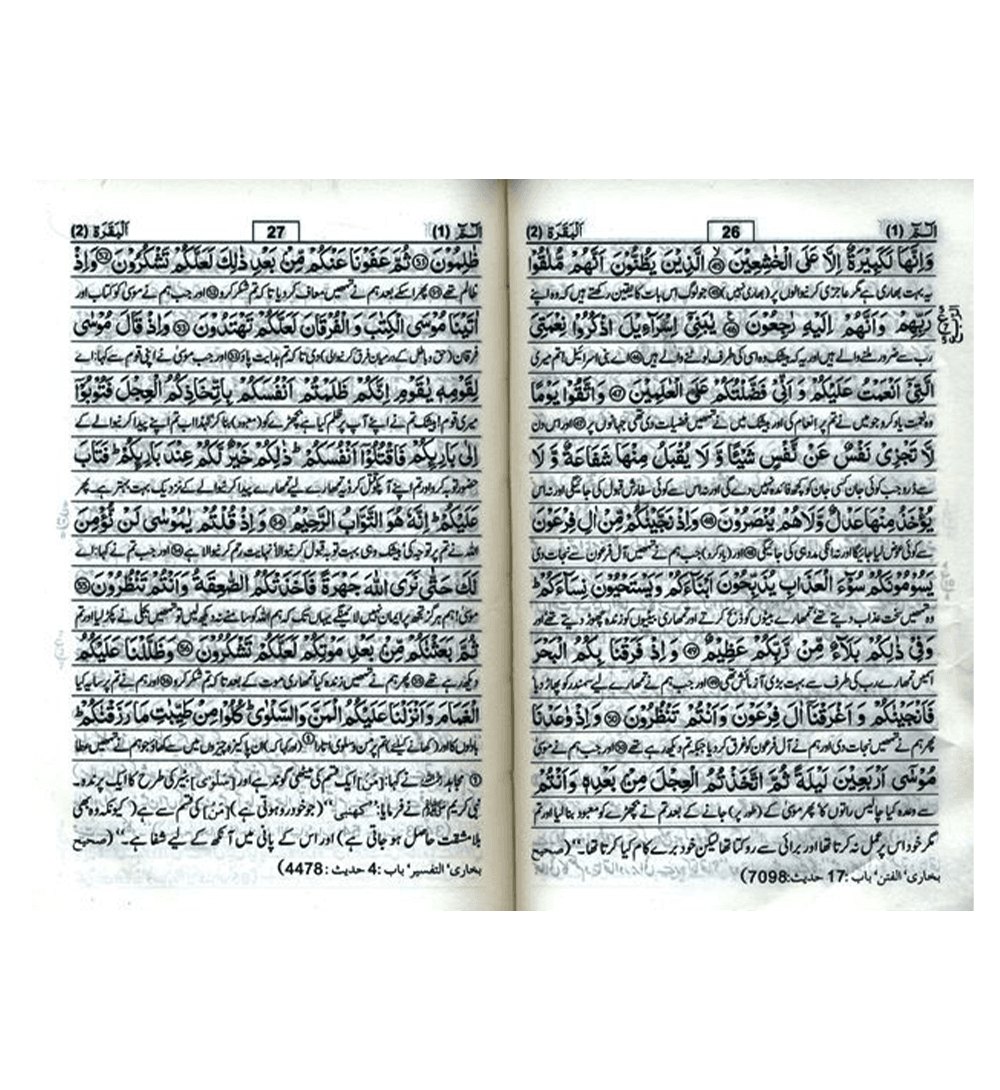 الٓمّٓ (1) 26 اَلْبَقَرَة (2)
وَاِنَّهَا لَكَبِيْرَةٌ اِلَّا عَلَى الْخٰشِعِيْنَ ㊺ الَّذِيْنَ يَظُنُّوْنَ اَنَّهُمْ مُّلٰقُوْا
یہ بہت بھاری ہے مگر عاجزی کرنیوالوں پر (بھاری نہیں) ㊺ جو لوگ اس بات کا یقین رکھتے ہیں کہ وہ اپنے
رَبِّهِمْ وَاَنَّهُمْ اِلَيْهِ رٰجِعُوْنَ ㊻ يٰبَنِيْٓ اِسْرَآءِيْلَ اذْكُرُوْا نِعْمَتِيَ
رب سے ضرور ملنے والے ہیں اور یہ کہ بیشک وہ اسی کی طرف لوٹنے والے ہیں ㊻ اے بنی اسرائیل! تم میری
الَّتِيْٓ اَنْعَمْتُ عَلَيْكُمْ وَ اَنِّيْ فَضَّلْتُكُمْ عَلَى الْعٰلَمِيْنَ ㊼ وَاتَّقُوْا يَوْمًا
وہ نعمت یاد کرو جو میں نے تم پر انعام کی اور بیشک میں نے تمھیں فضیلت دی تھی جہانوں پر ㊼ اور اس دن
لَّا تَجْزِيْ نَفْسٌ عَنْ نَّفْسٍ شَيْئًا وَّ لَا يُقْبَلُ مِنْهَا شَفَاعَةٌ وَّ لَا
سے ڈرو جب کوئی جان کسی جان کو کچھ فائدہ نہیں دے گی اور نہ اس سے کوئی سفارش قبول کی جائیگی اور نہ اس
يُؤْخَذُ مِنْهَا عَدْلٌ وَّلَا هُمْ يُنْصَرُوْنَ ㊽ وَاِذْ نَجَّيْنٰكُمْ مِّنْ اٰلِ فِرْعَوْنَ
سے کوئی عوض لیا جائیگا اور نہ انکی مدد ہی کی جائیگی ㊽ اور (یاد کرو) جب ہم نے تمھیں آل فرعون سے نجات دی
يَسُوْمُوْنَكُمْ سُوْٓءَ الْعَذَابِ يُذَبِّحُوْنَ اَبْنَآءَكُمْ وَيَسْتَحْيُوْنَ نِسَآءَكُمْ ؕ
وہ تمھیں سخت عذاب دیتے تھے تمھارے بیٹوں کو ذبح کرتے اور تمھاری بیٹیوں کو زندہ چھوڑ دیتے تھے اور
وَفِيْ ذٰلِكُمْ بَلَآءٌ مِّنْ رَّبِّكُمْ عَظِيْمٌ ㊾ وَ اِذْ فَرَقْنَا بِكُمُ الْبَحْرَ
اسمیں تمھارے رب کی طرف سے بہت بڑی آزمائش تھی ㊾ اور جب ہم نے تمھارے لیے سمندر کو پھاڑ دیا
فَاَنْجَيْنٰكُمْ وَ اَغْرَقْنَآ اٰلَ فِرْعَوْنَ وَاَنْتُمْ تَنْظُرُوْنَ ㊿ وَاِذْ وٰعَدْنَا
پھر ہم نے تمھیں نجات دی اور ہم نے آل فرعون کو غرق کر دیا جبکہ تم دیکھ رہے تھے ㊿ اور جب ہم نے موسیٰ
مُوْسٰٓى اَرْبَعِيْنَ لَيْلَةً ثُمَّ اتَّخَذْتُمُ الْعِجْلَ مِنْۢ بَعْدِهٖ وَ اَنْتُمْ
سے وعدہ کیا چالیس راتوں کا پھر موسیٰ کے (طور پر) جانے کے بعد تم نے بچھڑے کو معبود بنا لیا اور تم
مگر خود اس پر عمل نہ کرتا تھا اور برائی سے روکتا تھا لیکن خود برے کام کیا کرتا تھا۔“ (صحیح
بخاری، الفتن، باب: 17 حدیث: 7098)
الٓمّٓ (1) 27 اَلْبَقَرَة (2)
ظٰلِمُوْنَ (51) ثُمَّ عَفَوْنَا عَنْكُمْ مِّنْۢ بَعْدِ ذٰلِكَ لَعَلَّكُمْ تَشْكُرُوْنَ (52) وَاِذْ
ظالم تھے (51) پھر اسکے بعد ہم نے تمھیں معاف کر دیا تا کہ تم شکر کرو (52) اور جب ہم نے موسیٰ کو کتاب اور
اٰتَيْنَا مُوْسَى الْكِتٰبَ وَ الْفُرْقَانَ لَعَلَّكُمْ تَهْتَدُوْنَ (53) وَاِذْ قَالَ مُوْسٰى
فرقان (حق و باطل کے درمیان فرق کرنیوالی) دی تا کہ تم ہدایت پاؤ (53) اور جب موسیٰ نے اپنی قوم سے کہا: اے
لِقَوْمِهٖ يٰقَوْمِ اِنَّكُمْ ظَلَمْتُمْ اَنْفُسَكُمْ بِاتِّخَاذِكُمُ الْعِجْلَ فَتُوْبُوْٓا
میری قوم! بیشک تم نے اپنے آپ پر ظلم کیا ہے بچھڑے کو (معبود) بنا کر لہٰذا اب تم اپنے پیدا کرنیوالے کے
اِلٰى بَارِىِٕكُمْ فَاقْتُلُوْٓا اَنْفُسَكُمْ ؕ ذٰلِكُمْ خَيْرٌ لَّكُمْ عِنْدَ بَارِىِٕكُمْ ؕ فَتَابَ
حضور توبہ کرو اور تم اپنے آپ کو قتل کرو یہ تمھارے لیے تمھارے پیدا کرنیوالے کے نزدیک بہت بہتر ہے۔ پھر
عَلَيْكُمْ ؕ اِنَّهٗ هُوَ التَّوَّابُ الرَّحِيْمُ (54) وَ اِذْ قُلْتُمْ يٰمُوْسٰى لَنْ نُّؤْمِنَ
اللہ نے تم پر توجہ کی بیشک وہی بہت توبہ قبول کرنیوالا نہایت رحم کرنیوالا ہے (54) اور جب تم نے کہا: اے
لَكَ حَتّٰى نَرَى اللّٰهَ جَهْرَةً فَاَخَذَتْكُمُ الصّٰعِقَةُ وَاَنْتُمْ تَنْظُرُوْنَ (55)
موسیٰ! ہم ہرگز تجھ پر ایمان نہیں لائینگے یہاں تک کہ ہم اللہ کو سامنے نہ دیکھ لیں تو تمھیں بجلی نے پکڑ لیا اور تم
ثُمَّ بَعَثْنٰكُمْ مِّنْۢ بَعْدِ مَوْتِكُمْ لَعَلَّكُمْ تَشْكُرُوْنَ (56) وَظَلَّلْنَا عَلَيْكُمُ
دیکھ رہے تھے (55) پھر ہم نے تمھیں زندہ کیا تمھاری موت کے بعد تا کہ تم شکر کرو (56) اور ہم نے تم پر سایہ کیا
الْغَمَامَ وَ اَنْزَلْنَا عَلَيْكُمُ الْمَنَّ وَالسَّلْوٰى ؕ كُلُوْا مِنْ طَيِّبٰتِ مَا رَزَقْنٰكُمْ ؕ
بادلوں کا اور (کھانے کیلئے) تم پر من و سلویٰ اتارا ① (اور کہا کہ) ان پاکیزہ چیزوں میں سے کھاؤ جو ہم نے تمھیں عطا
① مجاہد رحمہ اللہ نے کہا: [مَنّ] ایک قسم کی میٹھی گوند ہے اور [سَلْوٰی] بٹیر کی طرح کا ایک پرندہ۔
نبی کریم ﷺ نے فرمایا: ”کھمبی“ (جو خود رو ہوتی ہے) [مَنّ] کی قسم سے ہے (کیونکہ وہ بھی
بلا مشقت حاصل ہو جاتی ہے) اور اس کے پانی میں آنکھ کے لیے شفا ہے۔“ (صحیح
بخاری، التفسیر، باب: 4 حدیث: 4478)